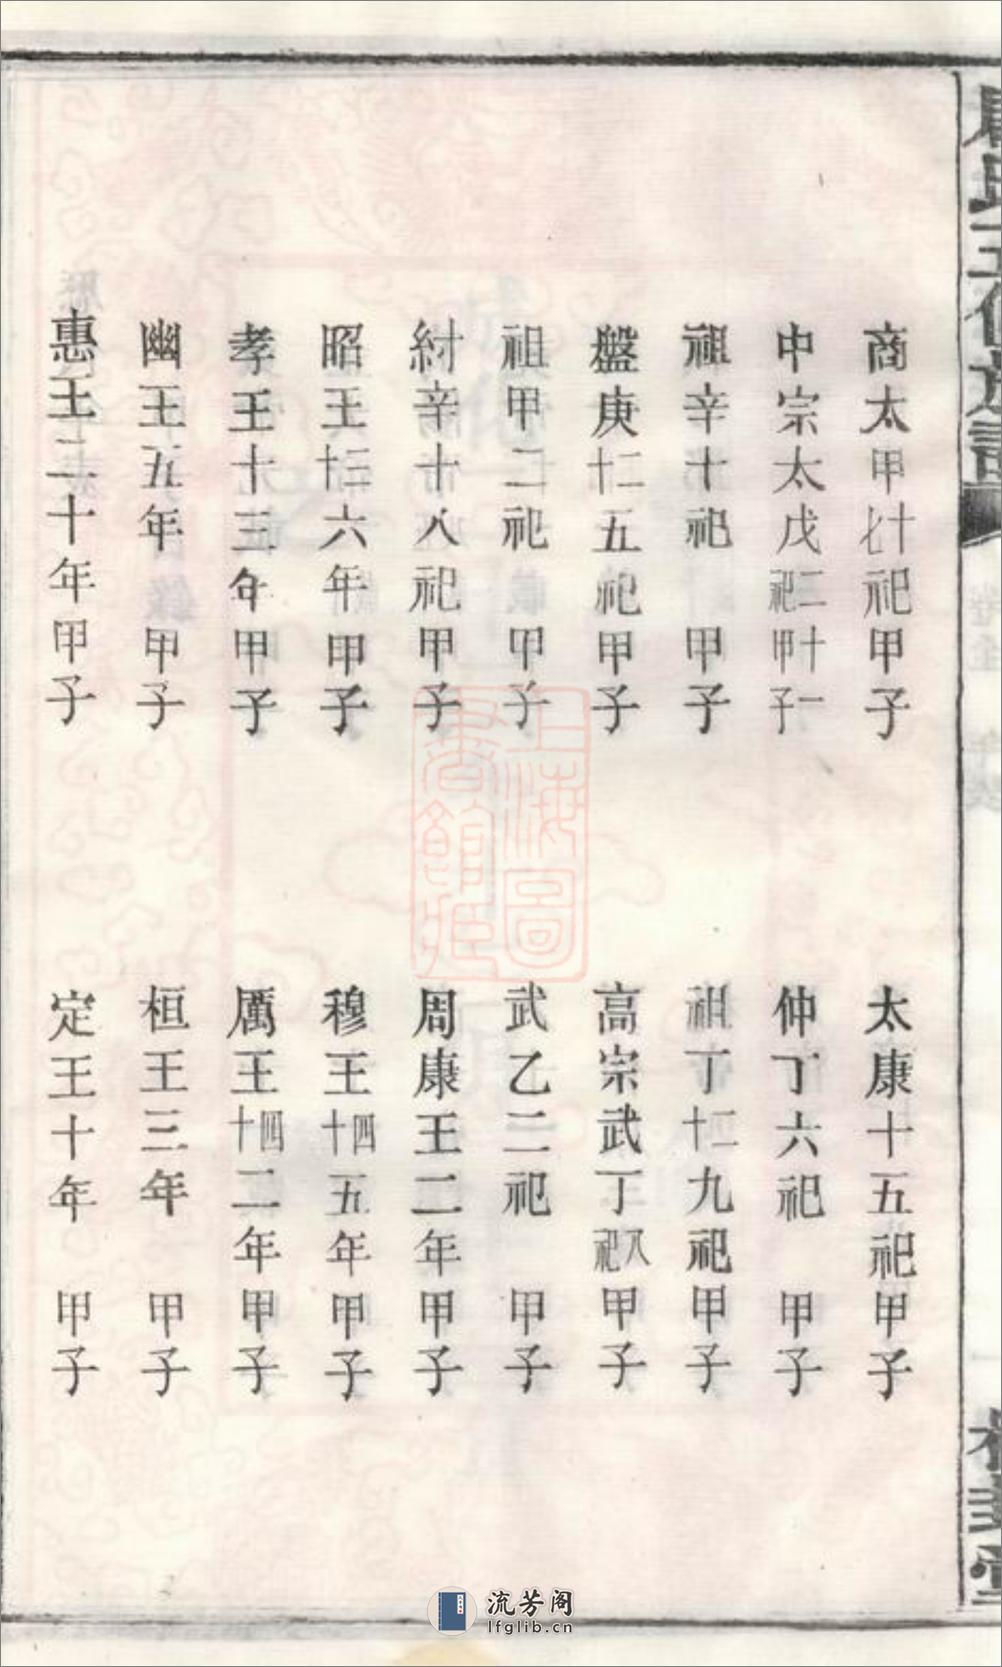 商太甲十七祀甲子　太康十五祀甲子
中宗太戊二十一祀甲子　仲丁六祀甲子
祖辛十祀甲子　祖丁二十九祀甲子
盤庚二十五祀甲子　高宗武丁八祀甲子
祖甲二祀甲子　武乙二祀甲子
紂辛十八祀甲子　周康王二年甲子
昭王三十六年甲子　穆王四十五年甲子
孝王十三年甲子　厲王四十二年甲子
幽王五年甲子　桓王三年甲子
惠王二十年甲子　定王十年甲子
上海圖書館藏
流芳阁
lfglib.cn